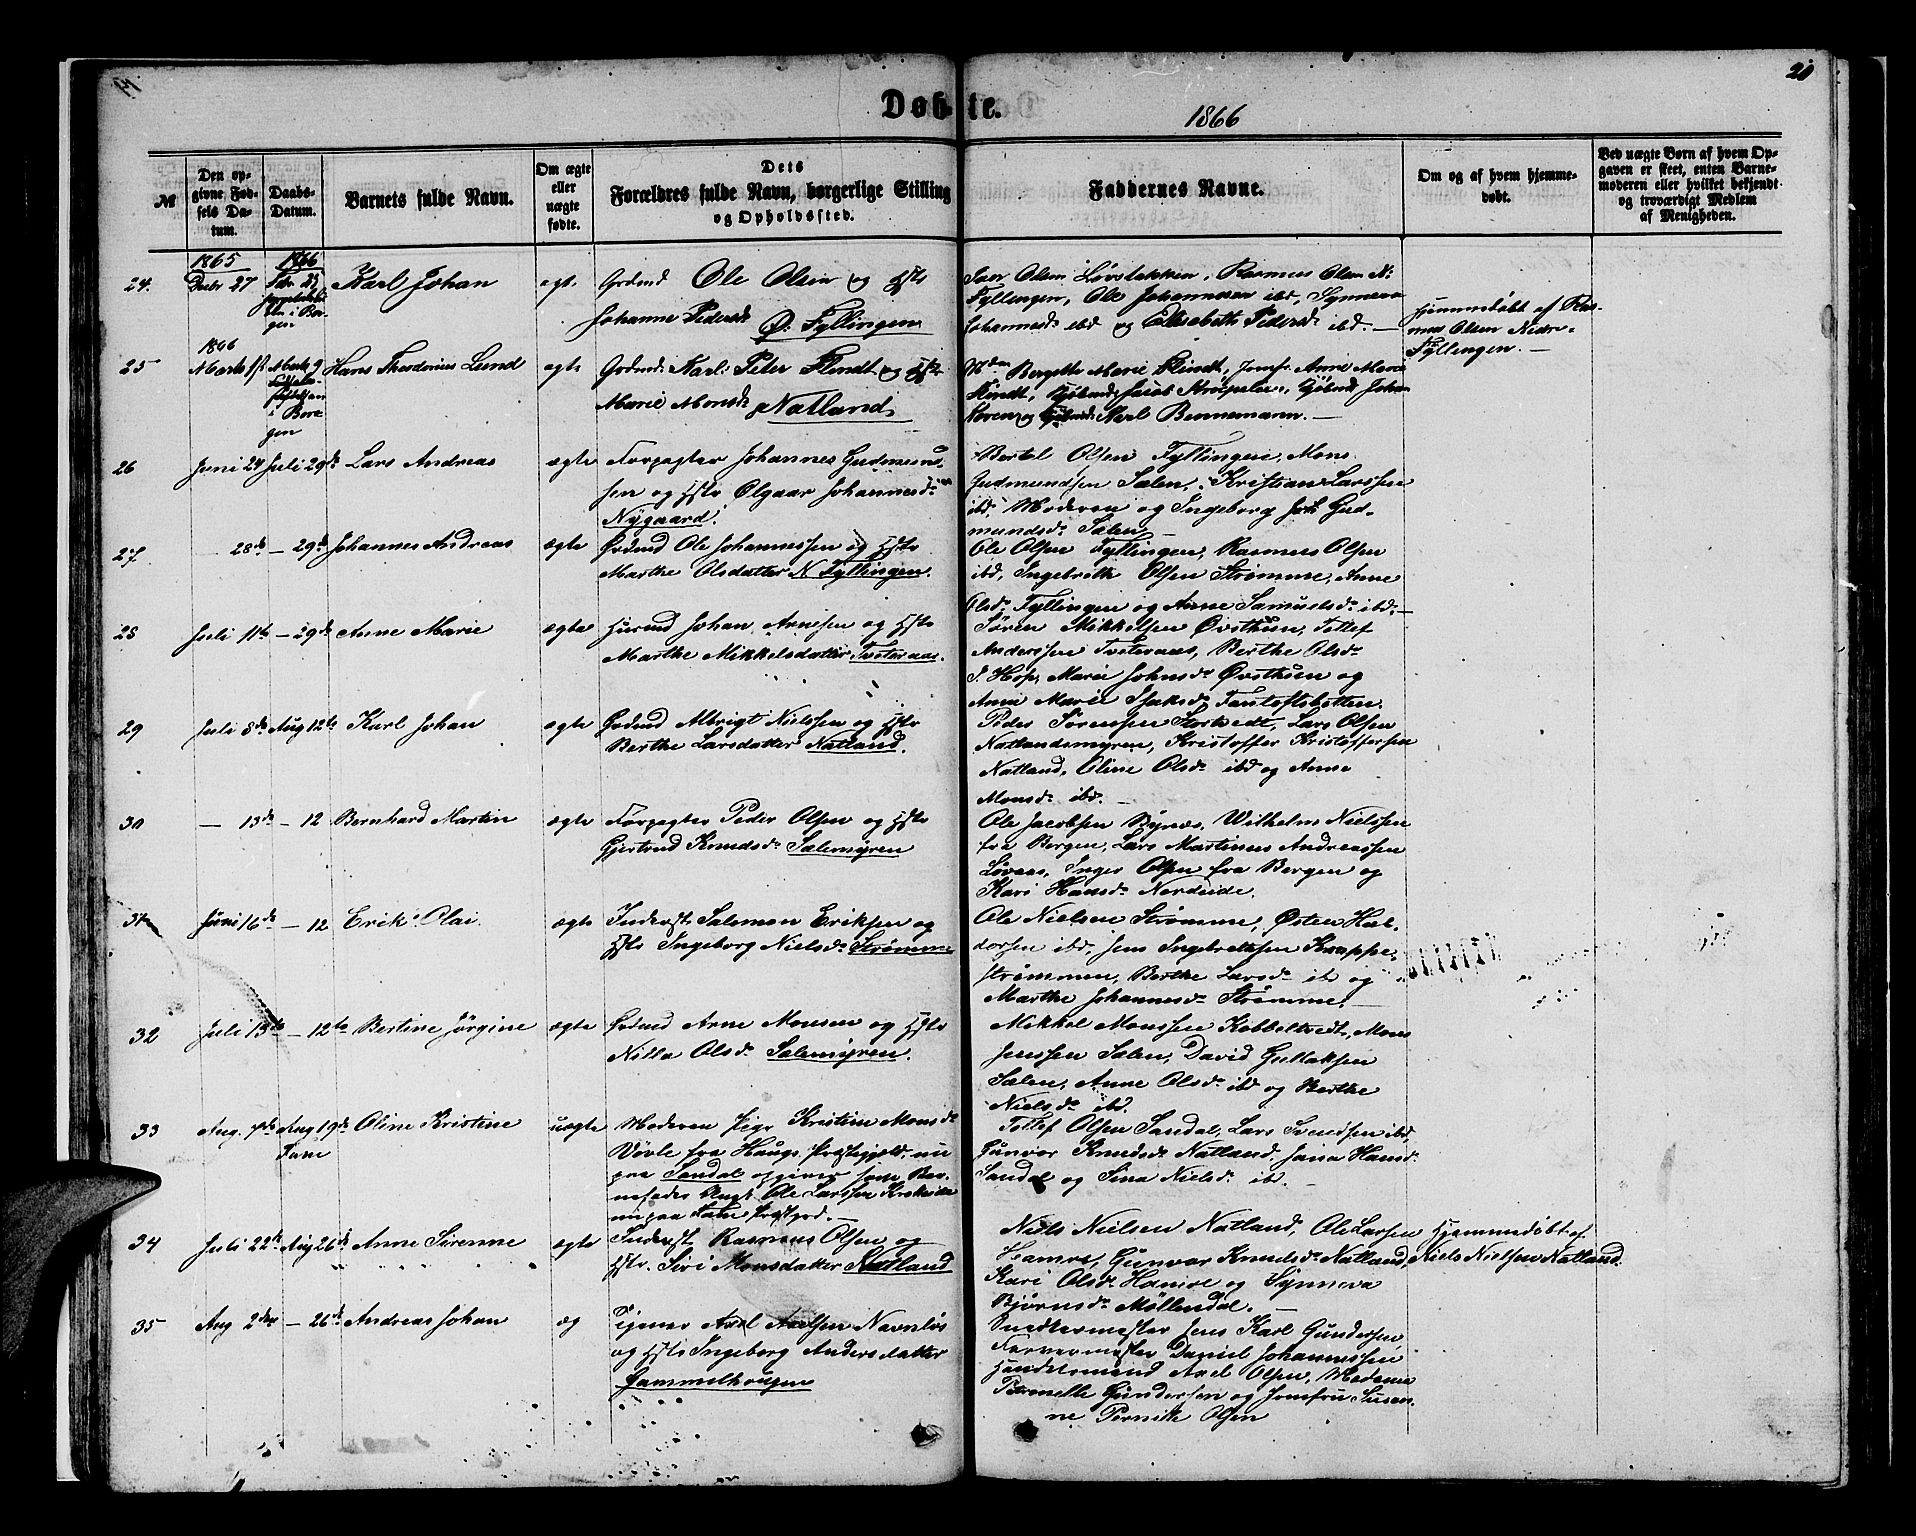 20
Døbte.
1866
№
Den op-
givne Fød-
sels Da-
tum.
Daabs-
Datum.
Barnets fulde Navn.
Om ægte
eller
uægte
fødte.
Dets
Forældres fulde Navn, borgerlige Stilling
og Opholdssted.
Faddernes Navne.
Om og af hvem hjemme-
døbt.
Ved uægte Børn af hvem Op-
gaven er skeet, enten Barne-
moderen eller hvilket bekjendt
og troværdigt Medlem
af Menigheden.
1865
1866
24.
Decbr 27
Karl Johan
ægte
Grdmd Ole Olsen og Hstr
Johanne Pedersdr
Ø. Fyllingen
Olsen Løvstakken, Rasmus Olsen N.
Fyllingen, Ole Johannesen ibd, Synneva
Johannesdr ibd og Elisabeth Pedersdr ibd. —
Hjemmedøbt af Ras-
mus Olsen Nedre
Fyllingen. —
1866
25
Marts 1st
Hans Theodorius Lund
ægte
Grdmd Karl Peter Flindt og Hstr
Marie Monsdr Natland
Bergette Marie Flindt, Jomfr Anne Marie
Flindt, Jacob Johan
Lorenz og Karl Bennemann. —
26
Juni 24
Juli 29de
Lars Andreas
ægte
Forpagter Johannes Gudmund-
sen og Hstr Olgaar Johannesdr
Nygaard.
Bertel Olsen Fyllingen, Mons
Gudmundsen Sælen, Kristian Larssen
ibd, Moderen og Ingeborg Gud-
mundsdr Sælen —
27.
28de
— 29de
Johannes Andreas
ægte
Grdmd Ole Johannessen og Hstr
Marthe Olsdatter N Fyllingen.
Ole Olsen Fyllingen, Rasmus Olsen
ibd, Ingebreth Olsen Strømme, Anne
Olsdr Fyllingen og Anne Samuelsdr ibd. —
28
Juli 11te
— 29de
Anne Marie
ægte
Husmd Johan Arnesen og Hstr
Marthe Mikkelsdatter Tveteraas.
Søren Mikkelsen Øvsthun, Tollef
Anderssen Tveteraas, Berthe Olsdr
Hop, Marie Johnsdr Øvsthun og
Anne Marie Isaksdr Fantoftbotten.
29
Juli 8de
Aug 12te
Karl Johan
ægte
Grdmd Albrigt Nielssen og Hstr
Berthe Larsdatter Natland.
Peder Sørensen Storetvedt, Lars Olsen
Natlandsmyren, Kristoffer Kristoffersen
Natland, Oline Olsdr ibd og Anne
Monsdr ibd. —
30
— 13de
— 12
Bernhard Martin
ægte
Forpagter Peder Olsen og Hstr
Gjertrud Knudsdr Sælemyren
Ole Jacobsen Bønæs, Wilhelm Nielssen
fra Bergen, Lars Martinus Andreassen
Løvaas, Inger Olsen fra Bergen og
Kari Hansdr Nordeide.
31
Juni 16de
— 12
Erik Olai
ægte
Inderst Salemon Eriksen og
Hstr Ingeborg Nielsdr Strømme
Ole Nielsen Strømme, Østen Hal-
dorsen ibd, Jens Ingebretsen Knappe-
strømmen, Berthe Larsdr ib og
Marthe Johannesdr Strømme. —
32
Juli 13de
— 12te
Bertine Jørgine
ægte
Grdmd Arne Monsen og Hstr
Nilla Olsdr Sælemyren.
Mikkel Monssen Kobbeltvedt, Mons
Jenssen Sælen, David Gullaksen
Sælen, Anne Olsdr ibd og Berthe
Nielsdr ibd.
33
Aug. 7de
Aug 19de
Oline Kristine
uægte
Moderen Pige Kristine Monsdr
Vøvle fra Haugs Præstegjeld, nu
paa Sandal opgiver som Bar-
nefader Ungk Ole Larssen
nu paa
Tollef Olsen Sandal, Lars Svendsen ibd,
Gunvor Knudsdr Natland, Jana Hansdr
Sandal og Sina Nielsdr ibd. —
34
Juli 22de
Aug 26de
Anne Sirenne
ægte
Inderst Rasmus Olsen og
Hstr. Siri Monsdatter Natland
Niels Nielsen Natland, Ole Larsen
Hamre, Gunvor Knudsdr Natland,
Kari Olsdr Hamre og Synneva
Bjørnsdr Møllendal. —
Hjemmedøbt af
Niels Nielsen Natland.
35
Aug 2den
— 26de
Andreas Johan
æg
Tjener Axel Axelsen Navnløs
og Hstr Ingeborg Andersdatter
Gammelhougen
Snedkermester Jens Karl Gundersen,
Farvermester Daniel Johannessen
Handelsmand Axel Olsen, Madame
Petronelle Gundersen og Jomfru Susan-
ne Pernille Olsen